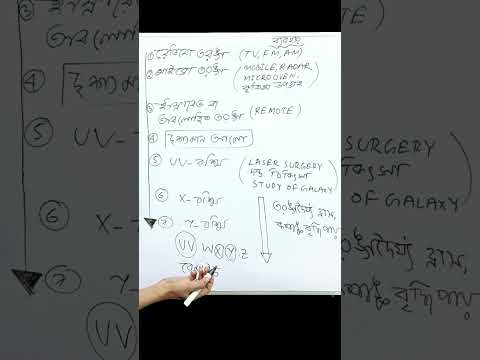 ব্যবহার
① রেডিও তরঙ্গ (TV, FM, AM)
② মাইক্রো তরঙ্গ (MOBILE, RADAR
MICROOVEN,
কৃত্রিম উপগ্রহ)
③
অবলোহিত তরঙ্গ (REMOTE)
④ দৃশ্যমান আলো
⑤ UV- রশ্মি (LASER SURGERY
দন্ত চিকিৎসা
STUDY OF GALAXY)
⑥ X- রশ্মি
⑦ γ- রশ্মি
তরঙ্গদৈর্ঘ্য হ্রাস,
কম্পাঙ্ক বৃদ্ধি পায়
UV W X Y Z
③
④
⑤ UV-
⑥ X-
⑦ γ-
UV
OF GALAXY
তরঙ্গদৈর্ঘ্য হ্রাস,
বৃদ্ধি পায়